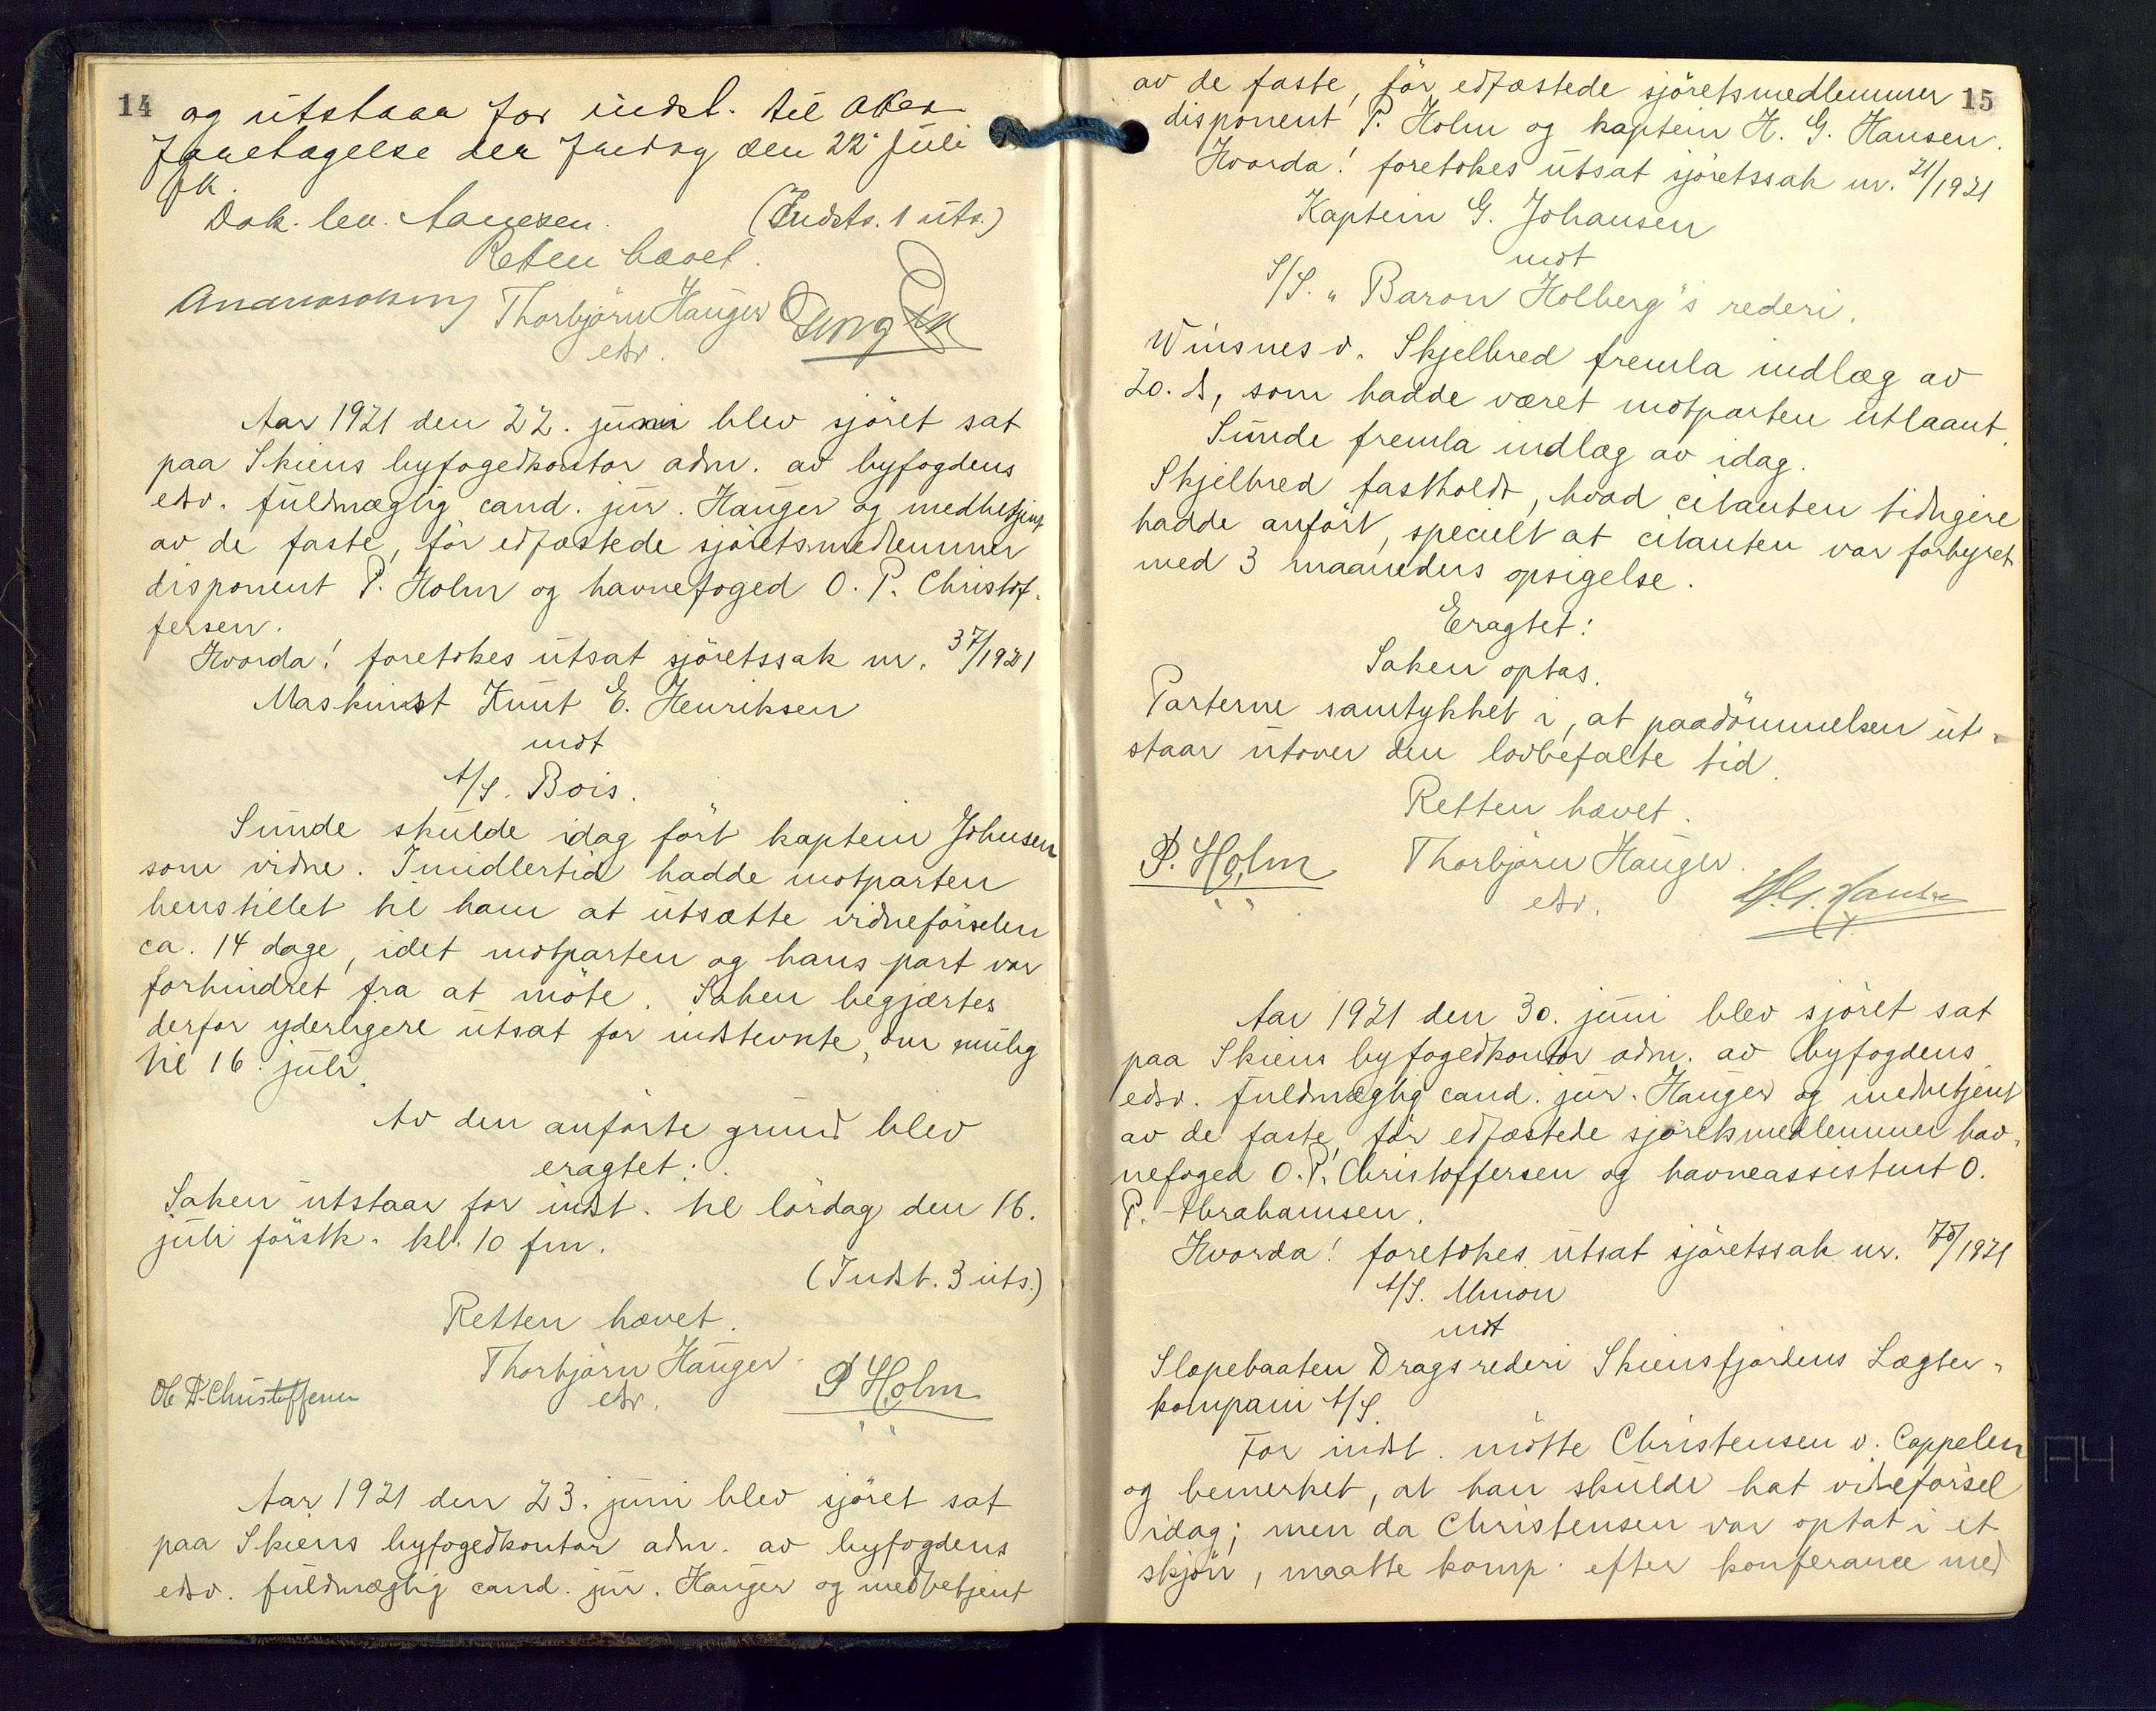 14
og utstaar for indst. til
foretagelse den fredag den 22 juli
fk.
Dok. lev. Aanesen. (Indsts. 1 uts.)
Retten hævet.
Thorbjörn Hauger
edsv.
Aar 1921 den 22. juni blev sjöret sat
paa Skiens byfogedkontor adm. av byfogdens
edsv. fuldmægtig cand. jur. Hauger og medbetjent
av de faste, för edfæstede sjöretsmedlemmer
disponent P. Holm og havnefoged O. P. Christof-
fersen.
Hvorda! foretokes utsat sjöretssak nr. 37/1921
Maskinist Knut E. Henriksen
mot
A/S. Bois.
Sunde skulde idag fört kaptein Johnsen
som vidne. Imidlertid hadde motparten
henstillet til ham at utsætte vidneförselen
ca. 14 dage, idet motparten og hans part var
forhindret fra at möte. Saken begjærtes
derfor yderligere utsat for indstevnte, om mulig
til 16. juli.
Av den anförte grund blev
eragtet:
Saken utstaar for indst. til lördag den 16.
juli förstk. kl. 10 fm.
(Indst. 3 uts.)
Retten hævet.
Thorbjörn Hauger
edsv.
P Holm
O P Christoffersen
Aar 1921 den 23. juni blev sjöret sat
paa Skiens byfogedkontor adm. av byfogdens
edsv. fuldmægtig cand. jur. Hauger og medbetjent
15
av de faste, för edfæstede sjöretsmedlemmer
disponent P. Holm og kaptein H. G. Hansen.
Hvorda! foretokes utsat sjöretssak nr. 21/1921
Kaptein G. Johansen
mot
S/S. "Baron Holberg"s rederi.
Winsnes v. Skjelbred fremla indlæg av
20. ds, som hadde været motparten utlaant.
Sunde fremla indlæg av idag.
Skjelbred fastholdt, hvad citanten tidligere
hadde anfört, specielt at citanten var forhyret
med 3 maaneders opsigelse.
Eragtet:
Saken optas.
Parterne samtykket i, at paadömmelsen ut-
staar utover den lovbefalte tid.
Retten hævet.
P. Holm
Thorbjörn Hauger.
edsv.
H. G. Hansen
Aar 1921 den 30. juni blev sjöret sat
paa Skiens byfogedkontor adm. av byfogdens
edsv. fuldmægtig cand. jur. Hauger og medbetjent
av de faste, för edfæstede sjöretsmedlemmer hav-
nefoged O. P. Christoffersen og havneassistent O.
P. Abrahamsen.
Hvorda! foretokes utsat sjöretssak nr. /1921
A/S. Union
mot
Slæpebaaten Drags rederi Skiensfjordens Lægter-
kompani A/S.
For indst. mötte Christensen v. Cappelen
og bemerket, at han skulde hat vidneförsel
idag; men da Christensen var optat i et
skjön, maatte komp. efter konferance med